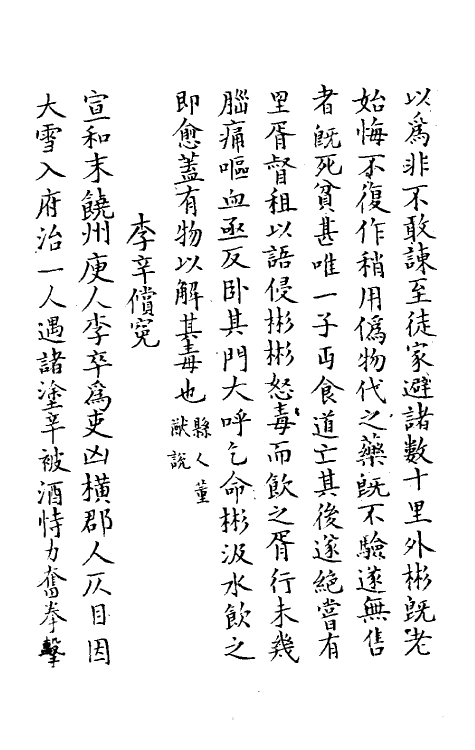 以為非不敢諫至徒家避諸數十里外彬既老
始悔不復作稍用偽物代之藥既不驗遂無售
者既死貧甚唯一子丐食道亡其後遂絕嘗有
里胥督租以語侵彬彬怒毒而飲之胥行未幾
腦痛嘔血亟反卧其門大呼乞命彬汲水飲之
即愈蓋有物以解其毒也縣人董猷說
李辛償冤
宣和末饒州庾人李辛為吏凶橫郡人仄目因
大雪入府治一人遇諸塗辛被酒恃力奮拳擊